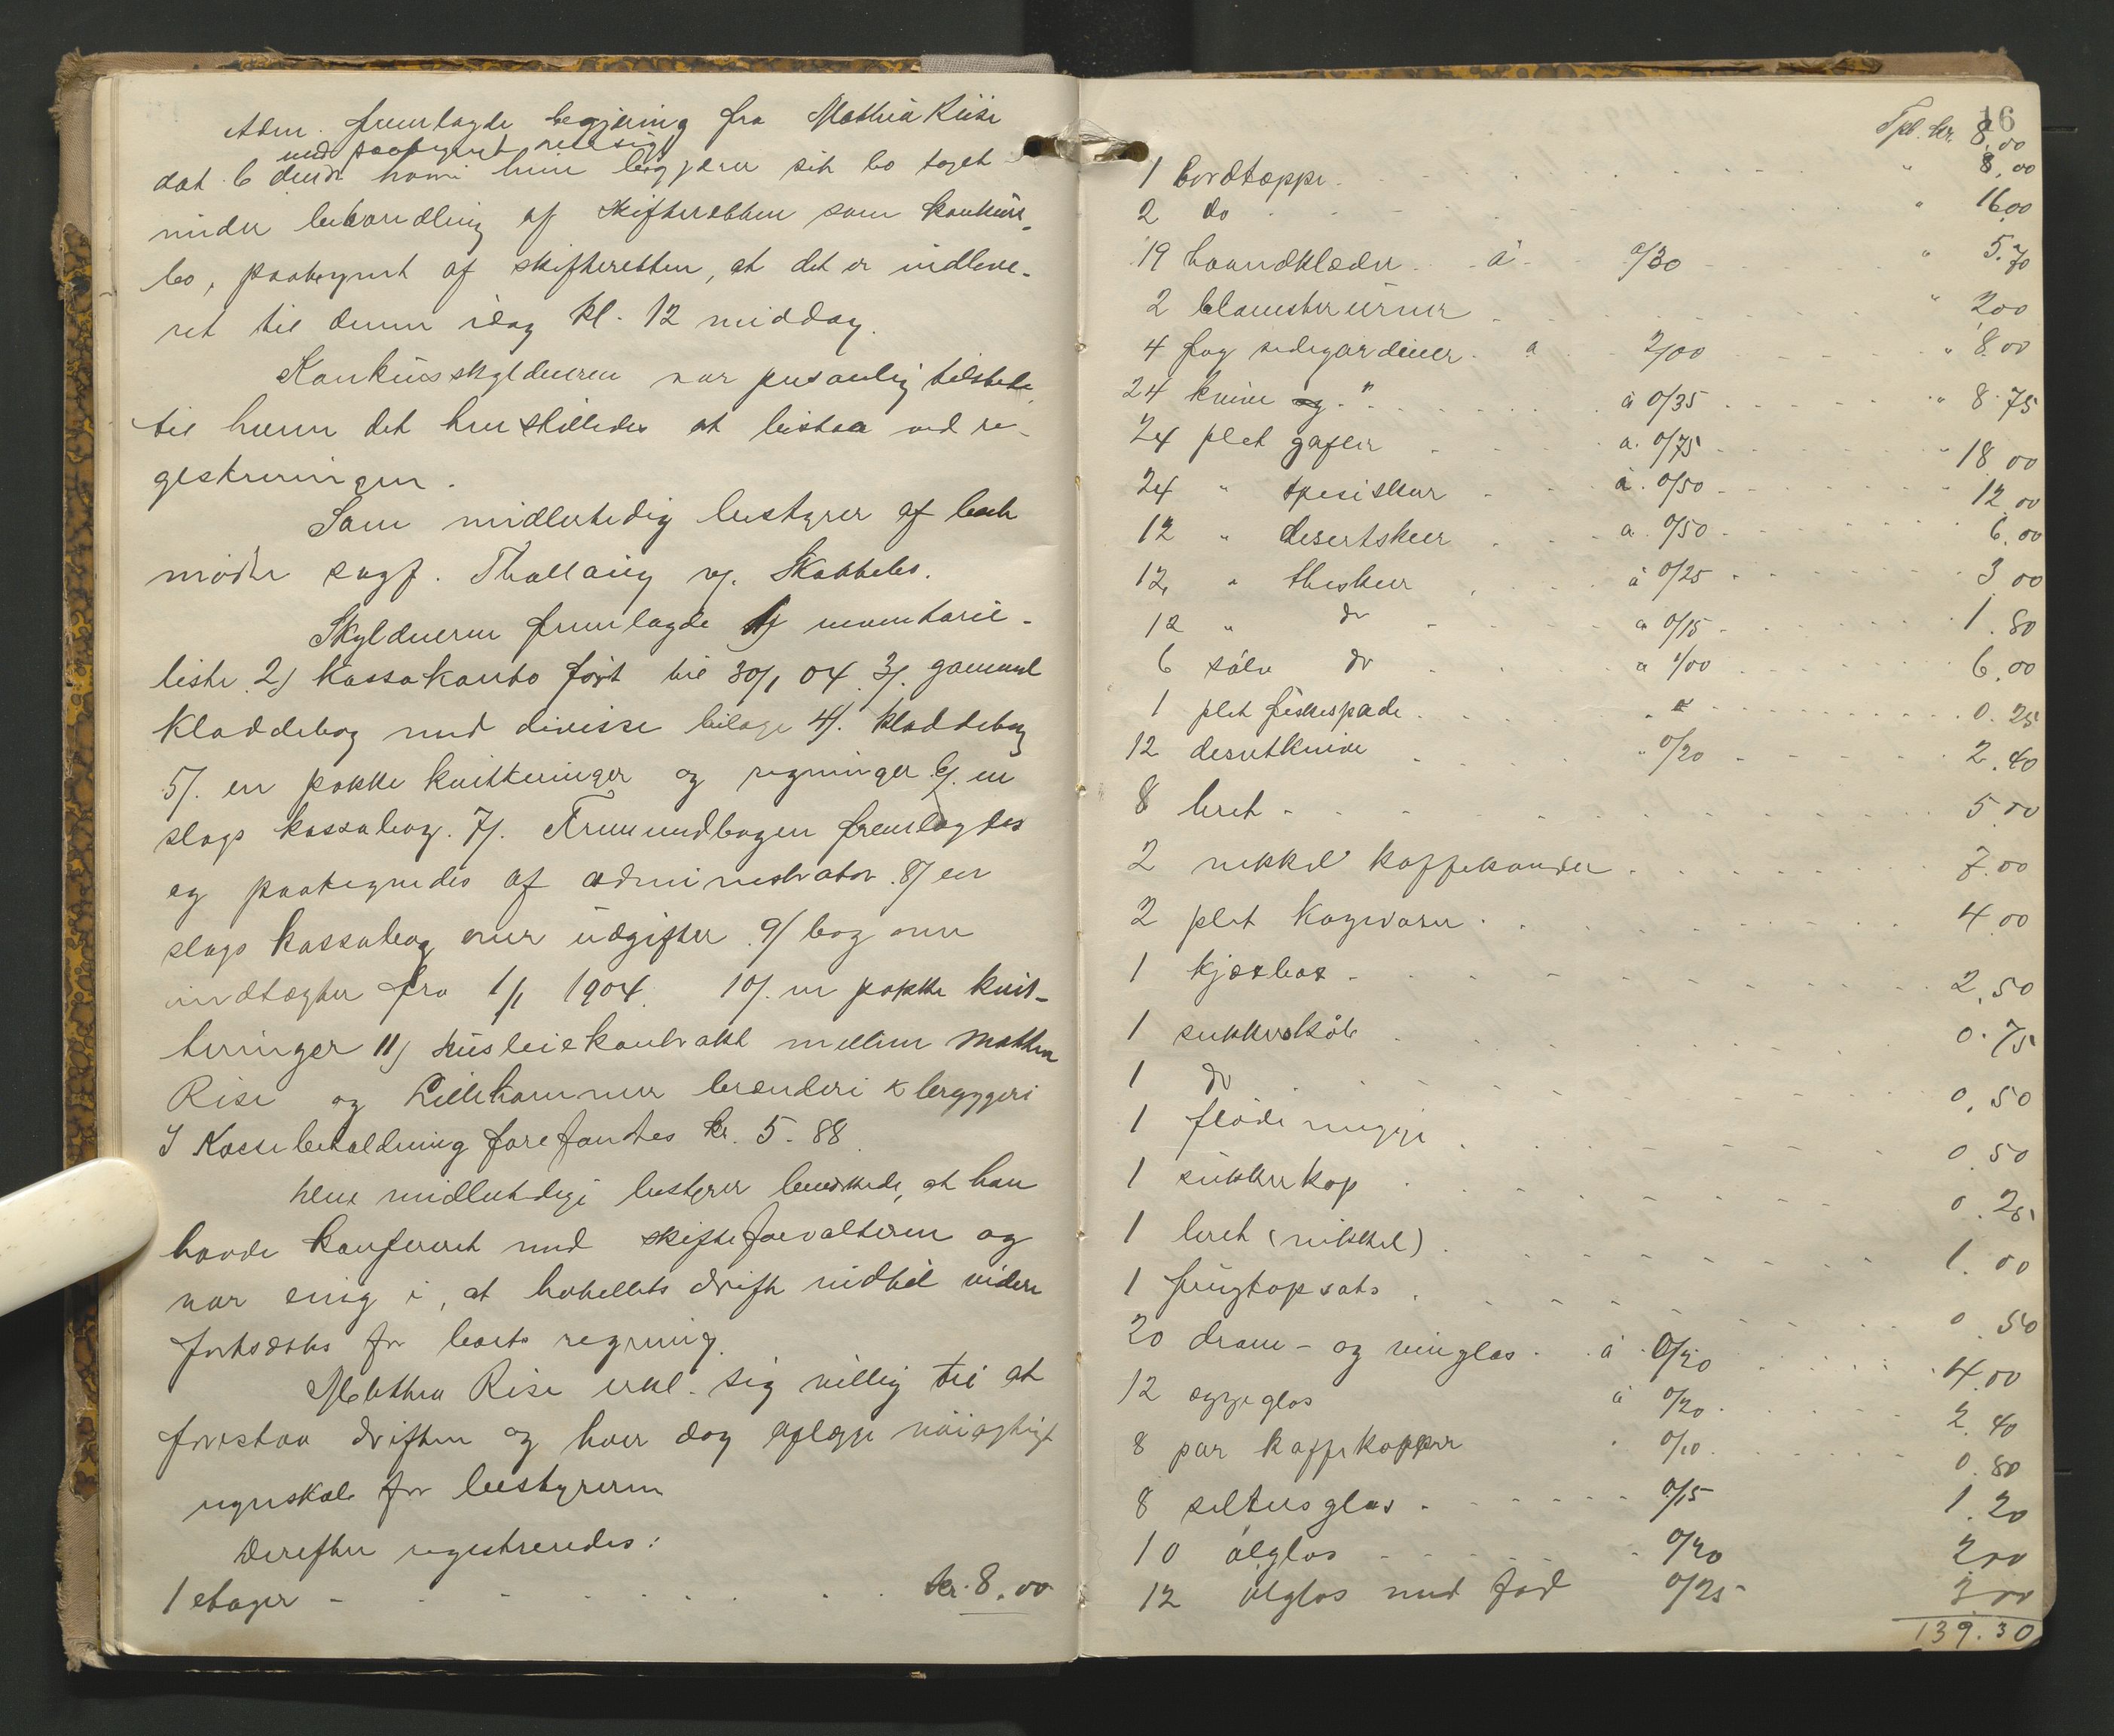 Adm. fremlagde begjæring fra Mathea Riise
med paategnet
dat. 6 ds. hvori hun begjærer sit bo taget
under behandling af skifteretten som konkurs-
bo, paategnet af skifteretten, at det er indleve-
ret til denne idag kl. 12 middag.
Konkursskyldneren var personlig tilstede
til hvem det henstilledes at bistaa ved re-
gistreringen.
Som midlertidig bestyrer af boet
mødte sagf. Thallaug og Skabbebo.
Skyldneren fremlagde 1/ inventarie-
liste 2/ kassakonto ført til 30/1 04. 3/. gammel
kladdebog med diverse bilage 4/. kladdebog
5/. en pakke kvitteringer og regninger 6/. en
slags kassabog. 7/. Fremmedbogen fremlagdes
og paategnedes af administrator. 8/ en
slags kassabog over udgifter. 9/ bog over
indtægter fra 1/1 1904. 10/. en pakke kvit-
teringer 11/ husleiekontrakt mellem Mathea
Rise og Lillehammer brænderi & bryggeri
I Kassebeholdning forefandtes kr. 5.88.
Den midlertidige bestyrer bemærkede, at han
havde konfereret med skifteforvalteren og
var enig i, at hotellets drift indtil videre
fortsættes for boets regning.
Mathea Rise erkl. sig villig til at
forestaa driften og hver dag aflægge nøiagtigt
regnskab for bestyreren
Derefter registreredes:
1 etager - - - - - kr. 8.00
16
Tpt. kr. 8.00
1 bordtæppe . . . " 8.00
2 do . . . " 16.00
19 haandklæder à 0/30 " 5.70
2 blomsterurner . . . " 2.00
4 fag sidegardiner à 2/00 " 8.00
24 knive " à 0/35 " 8.75
24 plet gafler à 0/75 " 18.00
24 " spiseskeer à 0/50 " 12.00
12 " desertskeer à 0/50 6.00
12 " theskeer à 0/25 3.00
12 " do à 0/15 1.80
6 sølv do à 1/00 6.00
1 plet fiskespade . . . 0.25
12 desertknive " 0/20 2.40
8 bret . . . 5.00
2 nikkel kaffekander . . . 7.00
2 plet kagevaser . . . 4.00
1 kjæxbox . . . 2.50
1 sukkerskål . . . 0.75
1 do . . . 0.50
1 flødemugge . . . 0.50
1 sukkerkop . . . 0.25
1 bret (nikkel) . . . 1.00
1 frugtopsats . . . 0.50
20 dram- og vinglas à 0/20 4.00
12 eggeglas à 0/20 2.40
8 par kaffekopper " 0/10 0.80
8 seltersglas . . . 0/15 1.20
10 ølglas . . . 0/20 2.00
12 ølglas med fod 0/25 3.00
139.30